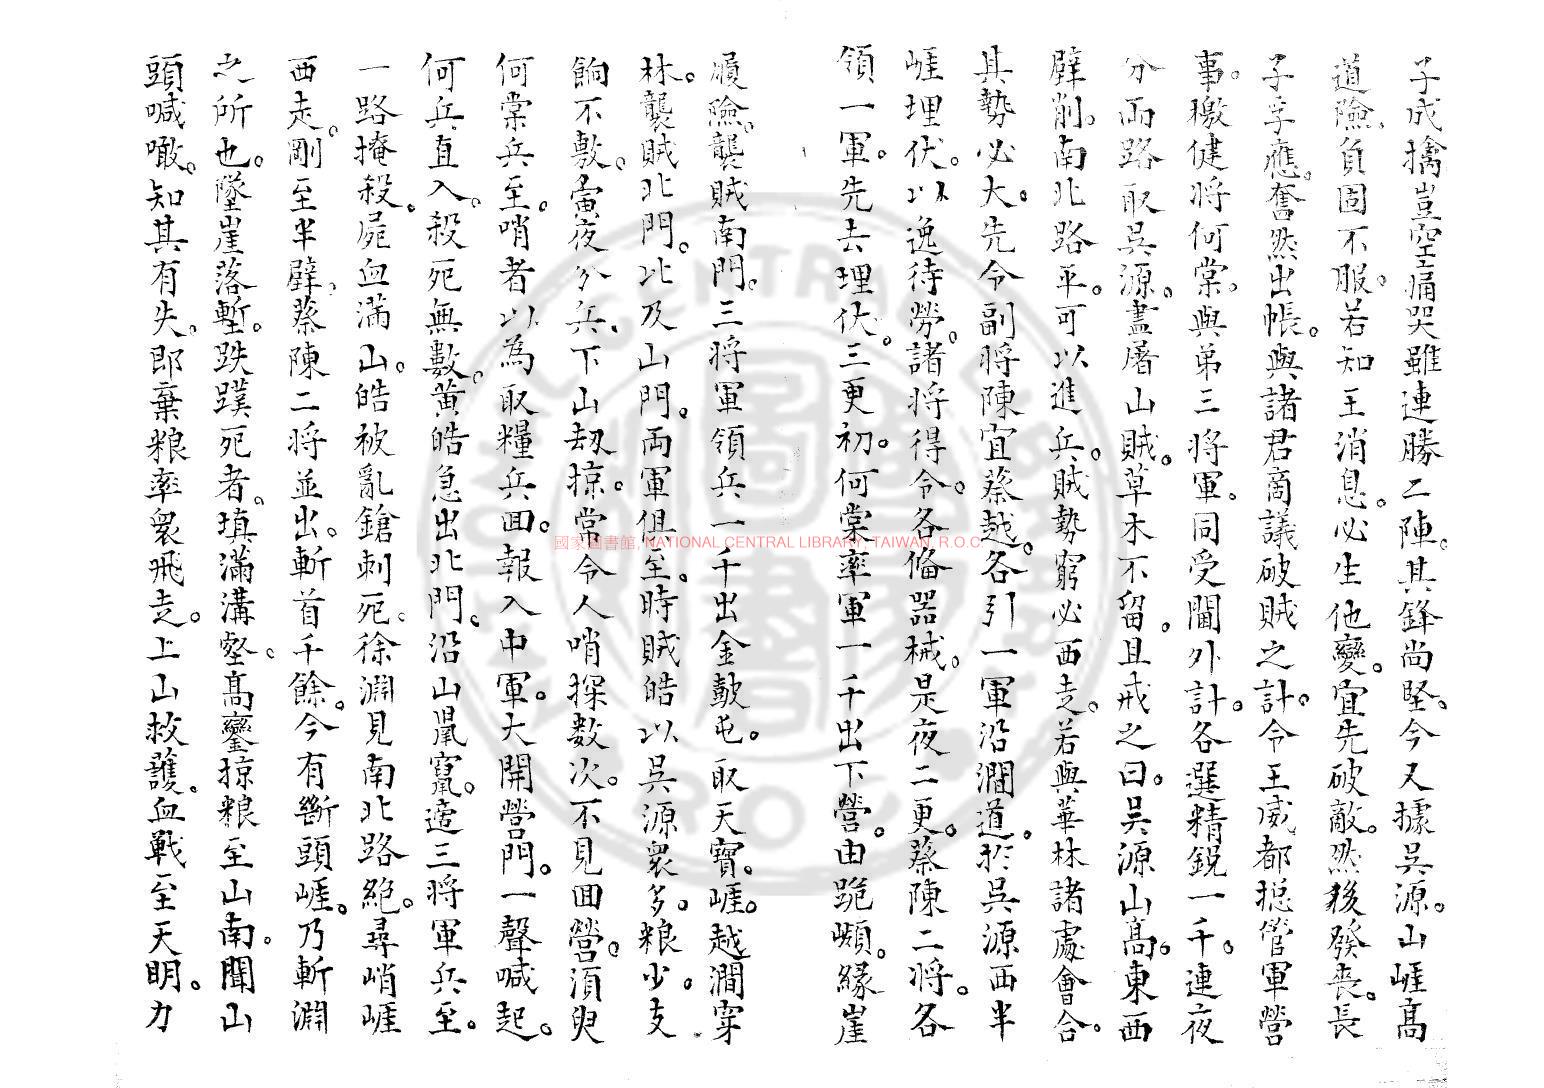 子成擒豈空痛哭雖連勝二陣。其鋒尚堅。今又據吳源。山崕高
道險。負固不服。若知王消息。必生他變。宜先破敵。然後發喪。長
子孚應。奮然出帳。與諸君商議破賊之計。令王威都搃管軍營
事。檄健将何棠。與弟三将軍。同受閫外計。各選精鋭一千。連夜
分両路取吳源。盡屠山賊。草木不留。且戒之曰。吳源山高。東西
壁削。南北路平。可以進兵。賊勢窮必西走。若與華林諸處會合。
其勢必大。先令副将陳宜蔡越。各引一軍沿澗道。扵吳源西半
崕埋伏。以逸待勞。諸将得令。各俻器械。是夜二更。蔡陳二将。各
領一軍。先去埋伏。三更初。何棠率軍一千出下營。由跪𡾋。緣崖
履險。襲賊南門。三将軍領兵一千出金鼓屯。取天寶。崕。越澗穿
林。襲賊北門。比及山門。両軍俱至。時賊皓以吳源衆多。粮少。支
餉不敷。當夜分兵。下山刼掠。常令人哨探数次。不見囬營。須臾
何棠兵至。哨者以為取糧兵囬。報入中軍。大開營門。一聲喊起。
何兵直入。殺死無數。黃皓急出北門。沿山鼠竄。適三将軍兵至。
一路掩殺。屍血滿山。皓被亂鎗刺死。徐淵見南北路絶。尋峭崕
西走。剛至半壁。蔡陳二将並出。斬首千餘。今有斷頭崕。乃斬淵
之所也。墜崖落塹。跌蹼死者。填滿溝壑。高鑾掠粮至山南。聞山
頭喊噉。知其有失。郎棄粮率衆飛走。上山救護。血戰至天明。力